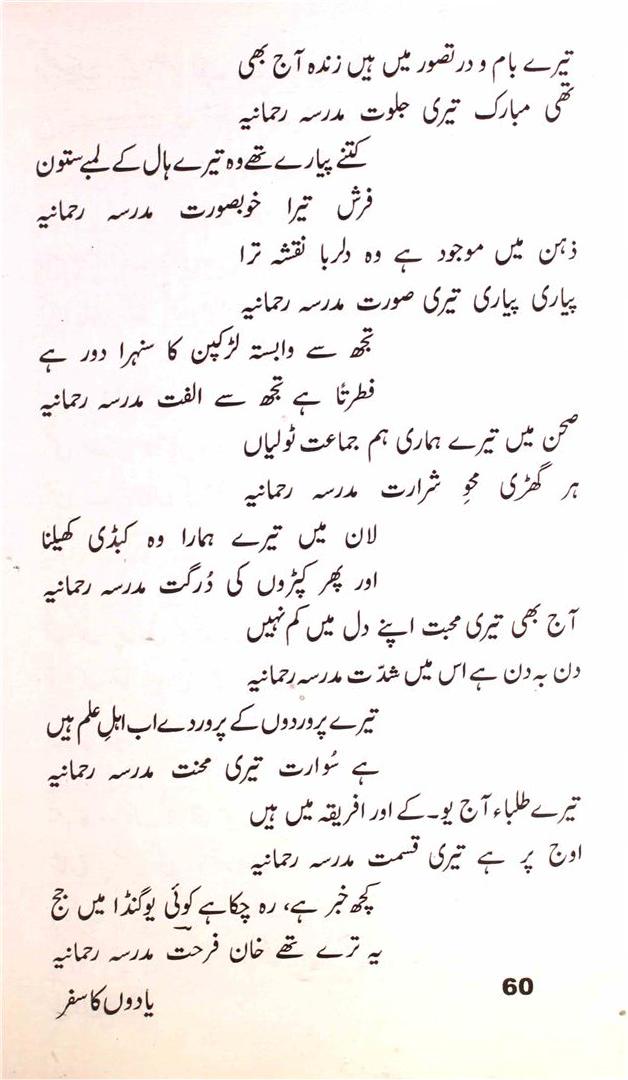 تیرے بام و در تصور میں ہیں زندہ آج بھی
تھی مبارک تیری جلوت مدرسہ رحمانیہ
کتنے پیارے تھے وہ تیرے ہال کے لمبے ستون
فرش تیرا خوبصورت مدرسہ رحمانیہ
ذہن میں موجود ہے وہ دلربا نقشہ ترا
پیاری پیاری تیری صورت مدرسہ رحمانیہ
تجھ سے وابستہ لڑکپن کا سنہرا دور ہے
فطرتاً ہے تجھ سے الفت مدرسہ رحمانیہ
صحن میں تیرے ہماری ہم جماعت ٹولیاں
ہر گھڑی محوِ شرارت مدرسہ رحمانیہ
لان میں تیرے ہمارا وہ کبڈی کھیلنا
اور پھر کپڑوں کی دُرگت مدرسہ رحمانیہ
آج بھی تیری محبت اپنے دل میں کم نہیں
دن بہ دن ہے اس میں شدّت مدرسہ رحمانیہ
تیرے پروردوں کے پروردے اب اہلِ علم ہیں
ہے سُوارت تیری محنت مدرسہ رحمانیہ
تیرے طلباء آج یو۔کے اور افریقہ میں ہیں
اوج پر ہے تیری قسمت مدرسہ رحمانیہ
کچھ خبر ہے، رہ چکا ہے کوئی یوگنڈا میں جج
یہ ترے تھے خان فرحت مدرسہ رحمانیہ
یادوں کا سفر
60